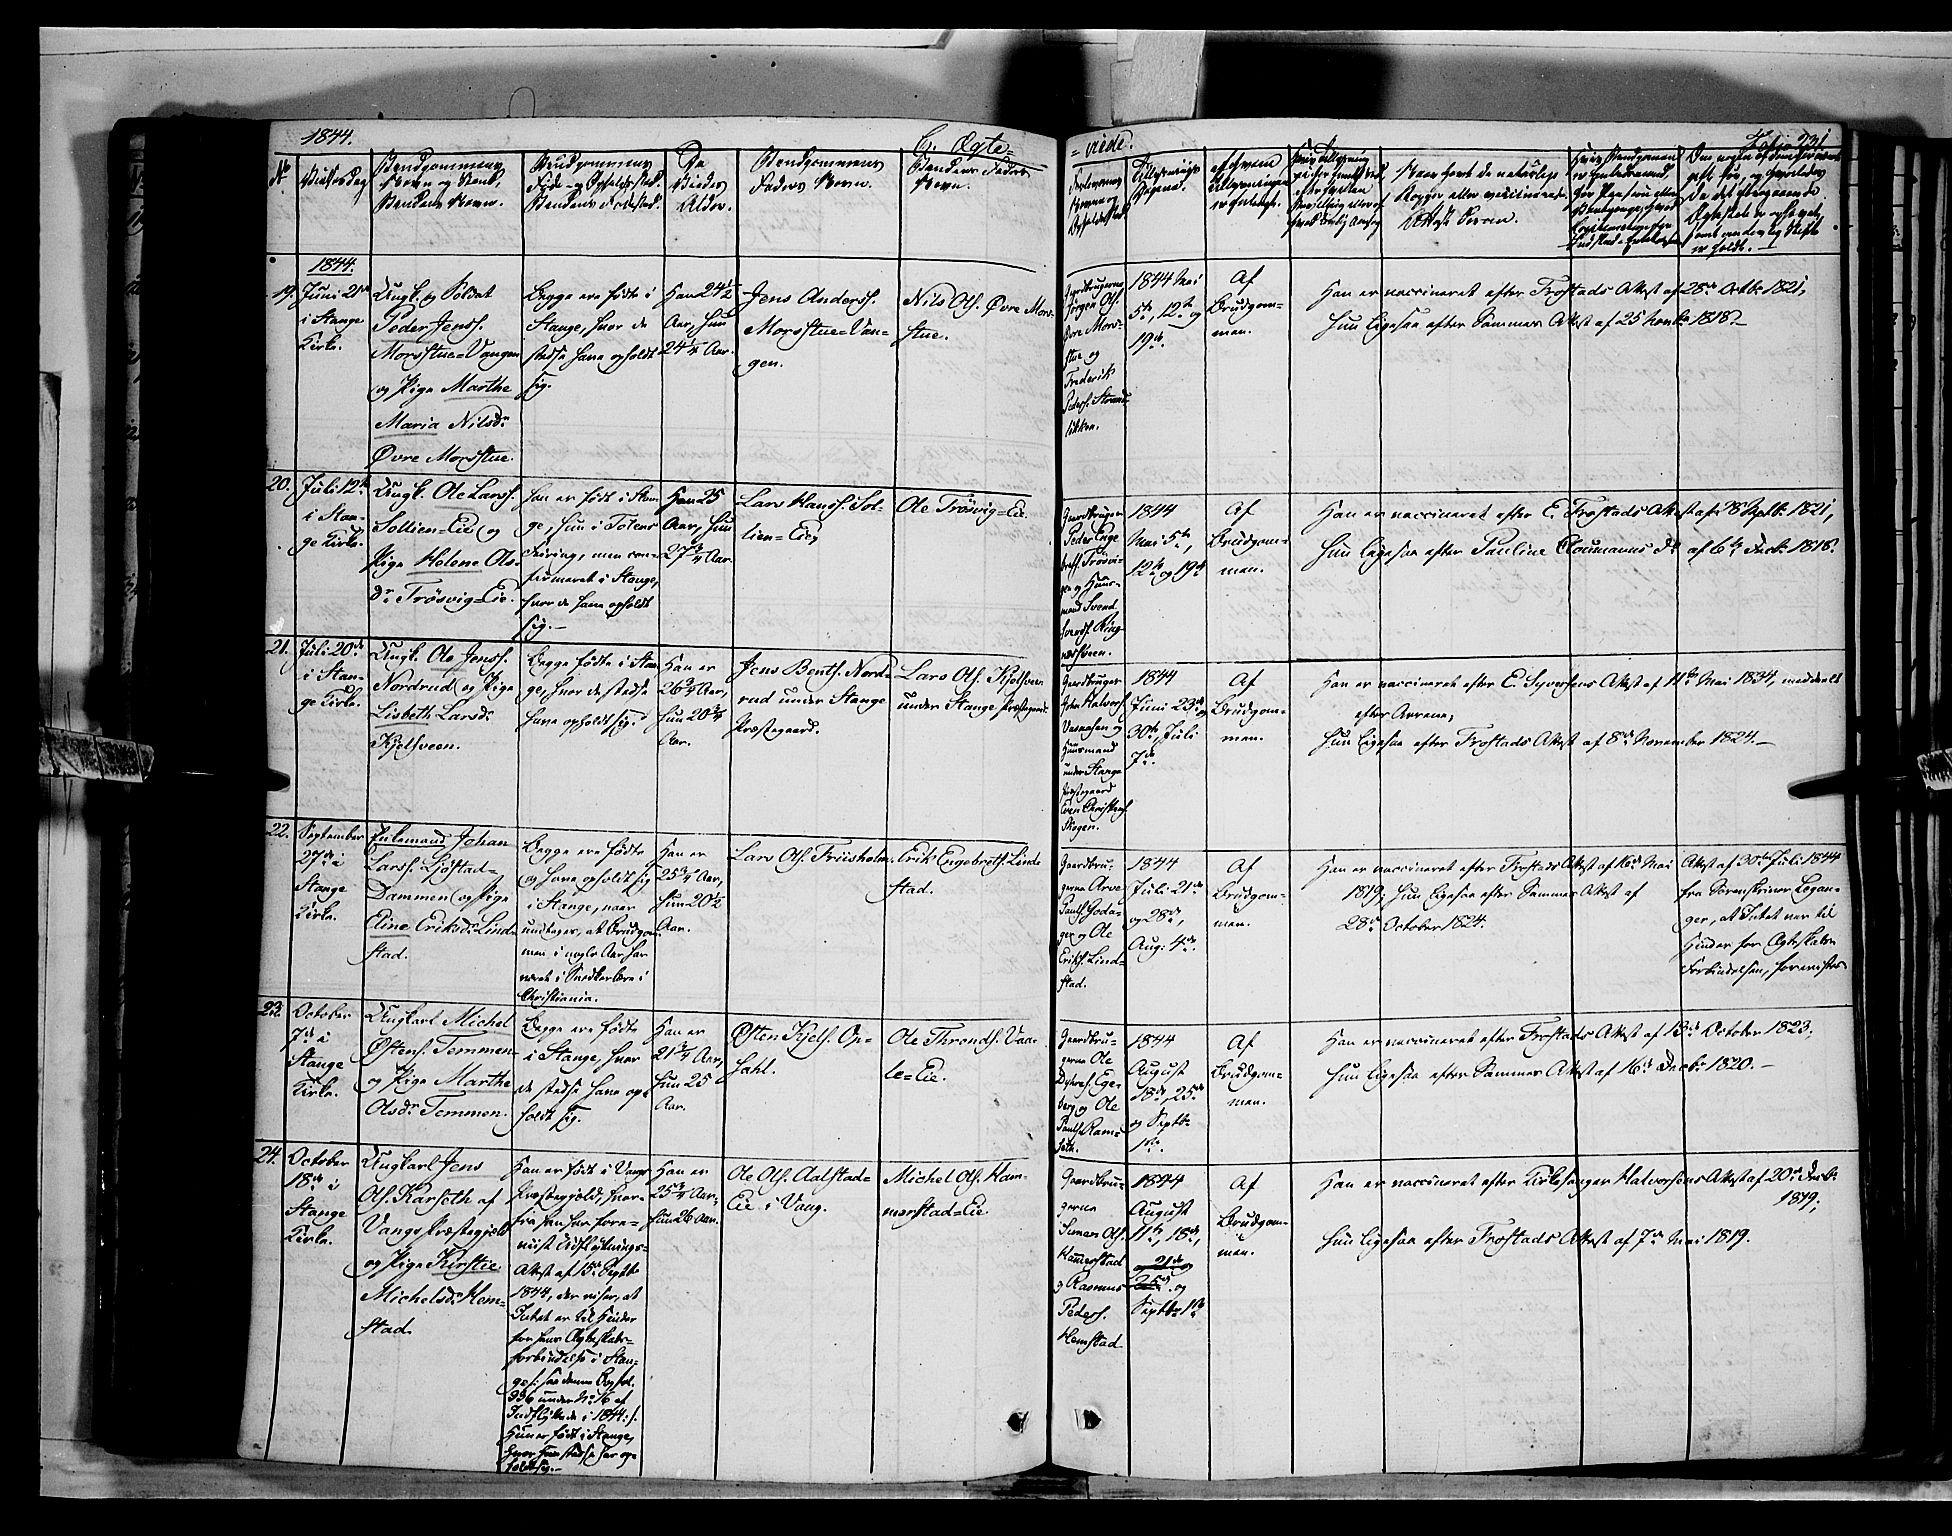 1844.
C. Ægte=
=viede.
Folio 231
No
Vielsesdag
Brudgommens
Navn og Stand,
Brudens Navn.
Brudgommens
Føde- og Opholdssted.
Brudens Fødested.
De
Viedes
Alder.
Brudgommens
Faders Navn.
Brudens Faders
Navn.
Forlovernes
Navne og
Opholdssted
Tillysnings
Dagene.
af hvem
Tillysningen
er forlangt.
Naar havt de naturlige
Kopper eller vaccinerede.
1844.
19.
Juni 21de
i Stange
Kirke.
Ungk. og Soldat
Peder Jenss.
Morstue=Vangen
og Pige Marthe
Maria Nilsdr
Øvre Morstue.
Begge ere fødte i
Stange, hvor de
stedse have opholdt
sig.
Han 24½
Aar, hun
24¼ Aar.
Jens Anderss.
Morstue=Van-
gen.
Nils Ols. Øvre Mor-
stue.
Gaardbrugerne
Jørgen Ols.
Øvre Mors-
tue og
Frederik
Peders. Strand-
løkken.
1844 Mai
5te, 12te og
19de.
Af
Brudgom-
men.
Han er vaccineret efter Frostads Attest af 28de Octb. 1821,
Hun ligesaa efter Sammes Attest af 25 Novbr 1818.
20.
Juli 12te
i Stan-
ge Kirke.
Ungk. Ole Larss.
Sollien=Eie og
Pige Helene Ols-
dr Trøsvig=Eie.
Han er født i Stan-
ge, hun i Totens
, men con-
firmeret i Stange,
hvor de have opholdt
sig.
Han 25
Aar, hun
27¾ Aar.
Lars Hanss. Sol-
lien=Eie,
Ole Trøsvig=Eie.
Gaardbruger
Peder Enge
brets. Trøsvi-
gen og Huus-
mand Svend
Svends. Ring-
nesveen.
1844
Mai 5te,
12te og 19de
Af
Brudgom-
men.
Han er vaccineret efter E. Frostads Attest af 28 Septb. 1821,
Hun ligesaa efter Pauline Cloumanns do af 6te Decbr 1818.
21.
Juli 20de
i Stan-
ge Kirke.
Ungk. Ole Jenss.
Nordrud og Pige
Lisbeth Larsdr
Kjelsveen.
Begge fødte i Stan-
ge, hvor de stedse
have opholdt sig.
Han er
26¾ Aar,
hun 20¾
Aar.
Jens Bents. Nord-
rud under Stange
Præstegaard.
Lars Ols. Kjelsveen
under Stange Præstegaard.
Gaardbruger
Halvors.
Vaaraasen og
Huusmand
under Stange
Præstegaard
Even Christens.
Skogen.
1844
Juni 23de
30te, Juli
7de.
Af
Brudgom-
men.
Han er vaccineret efter E. Syversens Attest af 11te Mai 1834, meddeelt
efter Arrene,
Hun ligesaa efter Frostads Attest af 8de November 1824.
22.
September
27de i
Stange
Kirke.
Enkemand Johan
Larss. Ljøstad-
Dammen og Pige
Eline Eriksdr Lind-
stad.
Begge ere fødte
og have opholdt sig
i Stange, naar
undtages, at Brudgom-
men i nogle Aar har
været i Snedkerlære i
Christiania.
Han er
25¾ Aar,
hun 20½
Aar.
Lars Ols. Friisholm.
Erik Engebrets. Lind-
stad.
Gaardbru-
gerne Arve
Pauls. Goda-
ger og Ole
Eriks. Lind-
stad.
1844
Juli 21de
og 28de,
Aug: 4de.
Af
Brudgom-
men.
Han er vaccineret efter Frostads Attest af 16de Mai
1819; hun ligesaa efter Sammes Attest af
28de October 1824.
Attest af 30te Juli 1844
fra Sorenskriver Bogan-
ger, at Intet var til
Hinder for Ægteskabs-
Forbindelsen, forevistes
23.
October
7de i
Stange
Kirke.
Ungkarl Michel
Østens. Tommen
og Pige Marthe
Olsdr Tommen.
Begge ere fødte
i Stange, hvor
de stedse have op-
holdt sig.
Han er
21¾ Aar,
hun 25
Aar.
Østen Kjels. Op-
sahl.
Ole Thronds. Vaa-
le=Eie.
Gaardbru-
gerne Ole
Ege-
berg og Ole
Pauls. Ram-
seth.
1844
August
18de, 25de
og Septb.
1ste.
Af
Brudgom-
men.
Han er vaccineret efter Frostads Attest af 13de October 1823,
Hun ligesaa efter Sammes Attest af 16de Decbr 1820.
24.
October
18de i
Stange
Kirke.
Ungkarl Jens
Ols. Karseth af
Vangs Præstegjeld
og Pige Kirstie
Michelsdr Hem-
stad.
Han er født i Vangs
Præstegjeld, hvor-
fra han har fore-
viist Udflytnings-
Attest af 15de Septb.
1844, der viser, at
Intet er til Hinder
for hans Ægteskabs-
forbindelse i Stan-
ge /: see denne Bog fol.
336 under No 16 af
Indflyttede i 1844:/.
Hun er født i Stange,
hvor hun stedse har op-
holdt sig.
Han er
25¾ Aar,
hun 26 Aar.
Ole Ols. Aalstad-
Eie i Vang.
Michel Ols. Ham-
merstad=Eie.
Gaardbru-
gerne
Simen Ols.
Hammerstad
og Rasmus
Peders.
Hemstad
1844
August
11te, 18de,
25de og
Septbr 1ste
Af
Brudgom-
men.
Han er vaccineret efter Kirkesanger Halvorsens Attest af 20de Decbr
1819;
Hun ligesaa efter Frostads Attest af 7de Mai 1819.